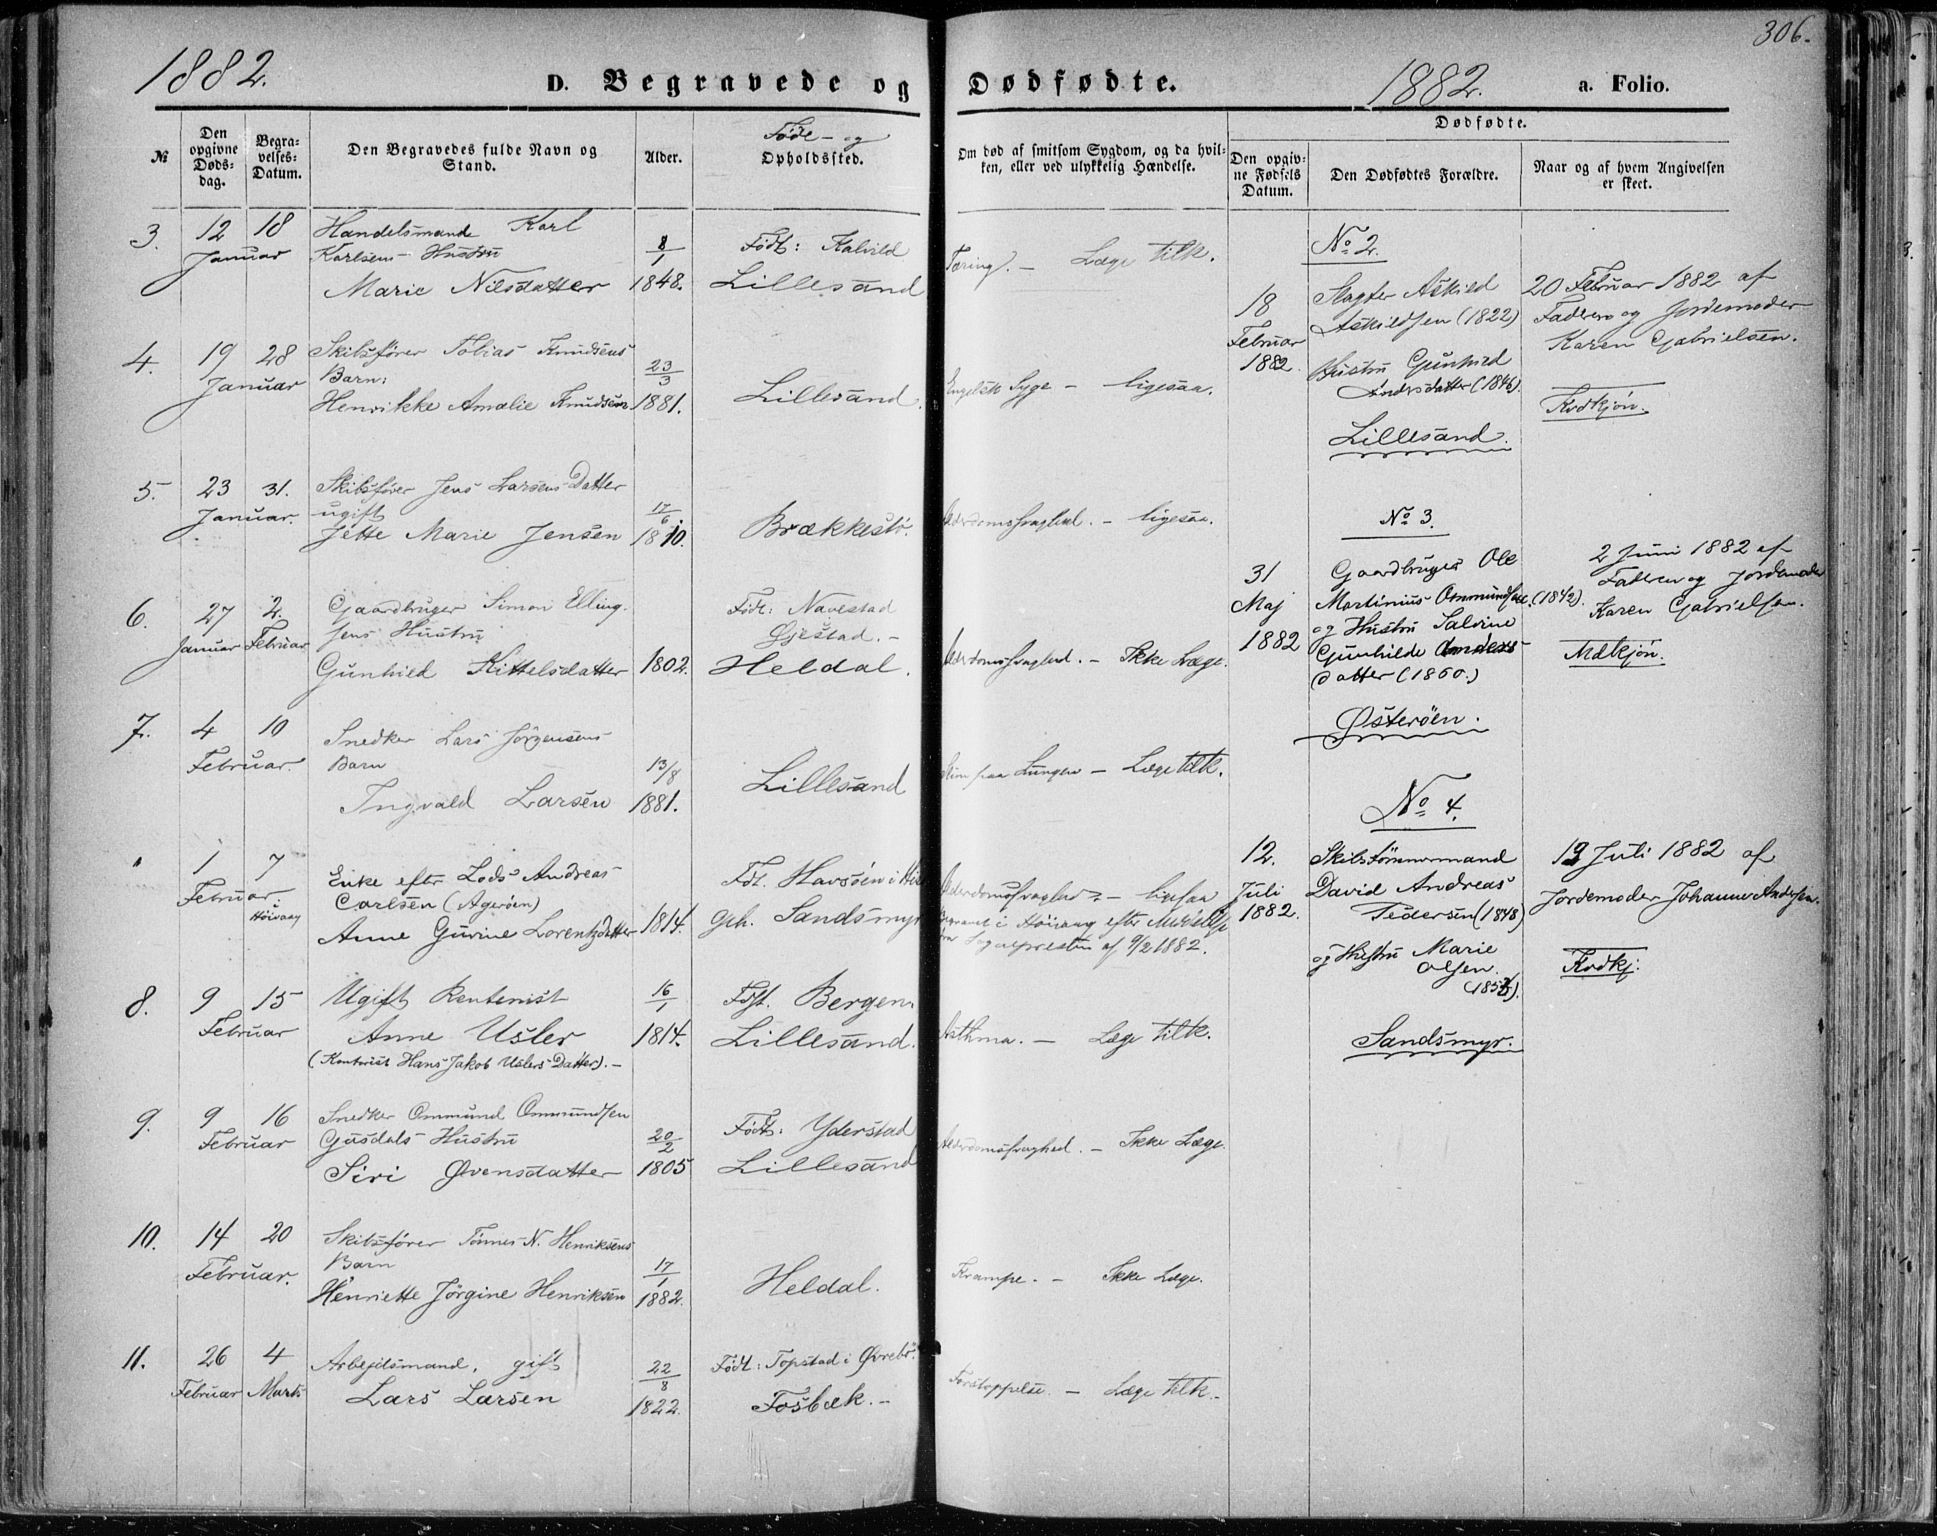 306.
1882.
D. Begravede og Dødfødte.
1882.
a. Folio.
№
Den opgivne Døds-dag.
Begra-velses-Datum.
Den Begravedes fulde Navn og Stand.
Alder.
Føde- og
Opholdssted.
Om død af smitsom Sygdom, og da hvil-
ken, eller ved ulykkelig Hændelse.
Dødfødte.
Den opgiv-
ne Fødsels
Datum.
Den Dødfødtes Forældre.
Naar og af hvem Angivelsen
er skeet.
3.
12 18
Januar
Handelsmand Karl
Karlsens Hustru
Marie Nilsdatter
8/1
1848.
Født: Kalvild
Lillesand
Tæring. — Læge tilk.
4.
19 28
Januar
Skibsfører Tobias Knudsens
Barn:
Henrikke Amalie Knudsen
23/3
1881.
Lillesand.
Engelsk Syge — ligesaa.
5.
23 31.
Januar.
Skibsfører Jens Larsens Datter
ugift
Jette Marie Jensen
17/6
1810.
Brækkestø.
Alderdomssvaghed. — ligesaa.
6.
27 2.
Januar Februar
Gaardbruger Simon Elling-
sens Hustru
Gunhild Kittelsdatter
1802.
Født: Navestad
Øjestad. —
Heldal.
Alderdomssvaghed. — Ikke Læge.
7.
4 10
Februar.
Snedker Lars Jørgensens
Barn
Ingvald Larsen
13/8
1881.
Lillesand
Slim paa Lungen — Læge tilk.
"
1 7
Februar i
Høivaag
Enke efter Lods Andreas
Carlsen (Agerøen)
Anne Gurine Lorentzdatter
1814.
Fdt. Havsøen i
Sandsmyr
Alderdomssvaghed — ligesaa
i Høivaag efter
Sognepresten af 9/2 1882.
8.
9 15
Februar
Ugift Rentenist
Anne Usler
(Kontorist Hans Jakob Uslers Datter). —
16/1
1814.
Fdt. Bergen.
Lillesand.
Asthma. — Læge tilk.
9.
9 16
Februar
Snedker Ommund Ommundsen
Gusdals Hustru
Siri Øvensdatter
20/2
1805
Født: Yderstad
Lillesand
Alderdomssvaghed. — Ikke Læge.
10.
14 20
Februar.
Skibsfører Tønnes N. Henriksens
Barn
Henriette Jørgine Henriksen
17/1
1882.
Heldal.
Krampe. — Ikke Læge.
11.
26 4
Februar Marts
Arbejdsmand, gift
Lars Larsen
22/8
1822.
Født: Topstad i Øvrebø.
Fosbæk. —
Forstoppelse. — Læge tilk. —
No 2.
18
Februar
1882.
Slagter Askild
Askildsen (1822)
Hustru Gunhild
Andersdatter (1846).
Lillesand.
20 Februar 1882 af
Faderen og Jordemoder
Karen Gabrielsen.
Kvdkjøn.
No 3.
31
Maj
1882
Gaardbruger Ole
Martinius Ommundsen (1842).
og Hustru Salvine
Gunhilde Anders-
datter (1860.)
Østerøen.
2 Juni 1882 af
Faderen og Jordemoder
Karen Gabrielsen.
Mdkjøn.
No 4.
12.
Juli
1882.
Skibstømmermand
David Andreas
Pedersen (1848)
og Hustru Marie
Olsen.
Sandsmyr.
Juli 1882 af
Jordemoder Johanne Andersen.
Kvdkj: